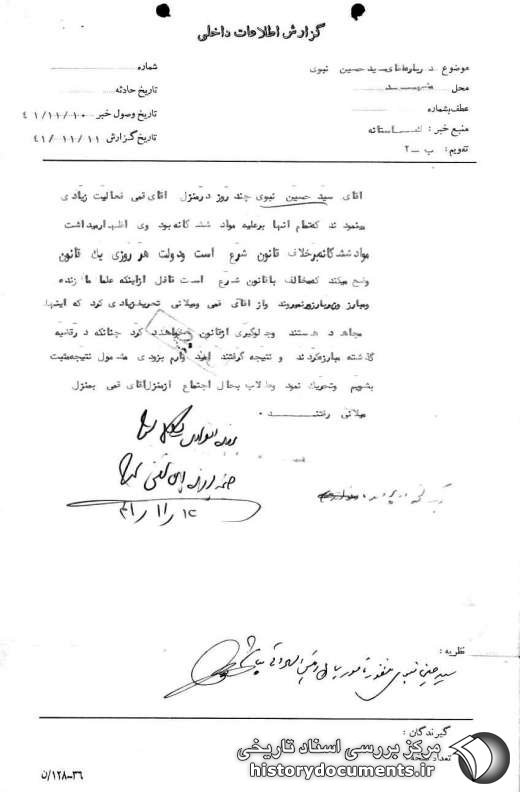 گزارش اطلاعات داخلی
موضوع : درباره آقای سید حسین نبوی
محل : مشهد
عطف بشماره
منبع خبر :
تقویم : ب - ۲
شماره
تاریخ حادثه
تاریخ وصول خبر ۴۱/۱۱/۱۰
تاریخ گزارش ۴۱/۱۱/۱۱
آقای سید حسین نبوی چند روز درمنزل آقای قمی فعالیت زیادی
مینمودند که تمام آنها برعلیه مواد ششگانه بود وی اظهار میداشت
مواد ششگانه برخلاف قانون شرع است ودولت هر روزی یک قانون
وضع میکند که مخالف با قانون شرع است غافل ازاینکه علما ما زنده
ومبارز وزیر بار زور نمیروند واز آقای قمی ومیلانی تعریف زیادی کرد که اینها
مجاهد هستند وجلوگیری ازقانون خواهند کرد چنانکه درقضیه
گذشته مبارزه کردند و نتیجه گرفتند امید وارم بزودی مشمول نتیجه مثبت
بشویم وتحریک نمود وطلاب بحال اجتماع ازمنزل آقای قمی بمنزل
میلانی رفتند .
۱۲ / ۱۱ / ۴۱
نظریه :
سید حسین نبوی
گیرندگان :
تعداد نسخه
۳۶-۱۲۸/ن
مرکز بررسی اسناد تاریخی
historydocuments.ir